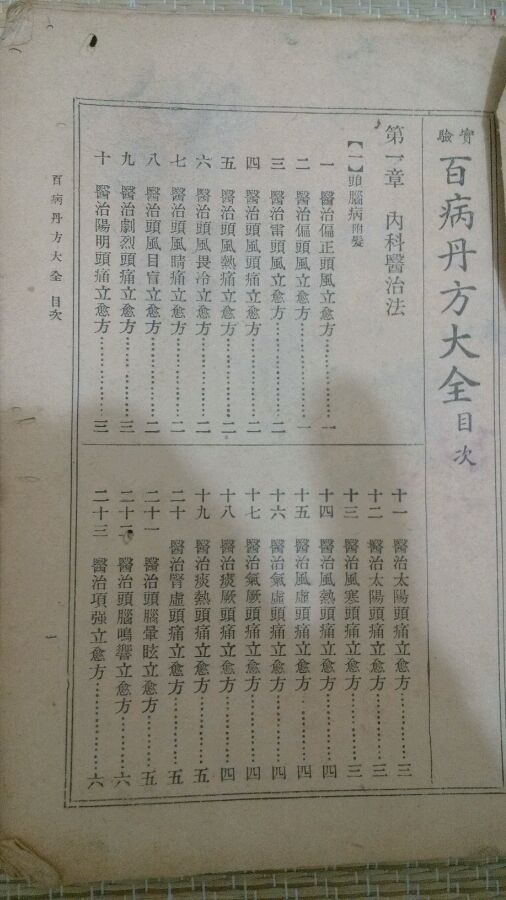 實驗 百病丹方大全目次
第一章 內科醫治法
【一】頭腦病 附髮
一 醫治偏正頭風立愈方…………一
二 醫治偏頭風立愈方…………一
三 醫治雷頭風立愈方…………二
四 醫治頭風頭痛立愈方…………二
五 醫治頭風熱痛立愈方…………二
六 醫治頭風畏冷立愈方…………二
七 醫治頭風睛痛立愈方…………二
八 醫治頭風目盲立愈方…………二
九 醫治劇烈頭痛立愈方…………三
十 醫治陽明頭痛立愈方…………三
十一 醫治太陽頭痛立愈方…………三
十二 醫治太陽頭痛立愈方…………三
十三 醫治風寒頭痛立愈方…………三
十四 醫治風熱頭痛立愈方…………四
十五 醫治風虛頭痛立愈方…………四
十六 醫治氣虛頭痛立愈方…………四
十七 醫治氣厥頭痛立愈方…………四
十八 醫治痰厥頭痛立愈方…………四
十九 醫治痰熱頭痛立愈方…………五
二十 醫治腎虛頭痛立愈方…………五
二十一 醫治頭腦暈眩立愈方…………五
二十二 醫治頭腦鳴響立愈方…………六
二十三 醫治項强立愈方…………六
百病丹方大全 目次
一